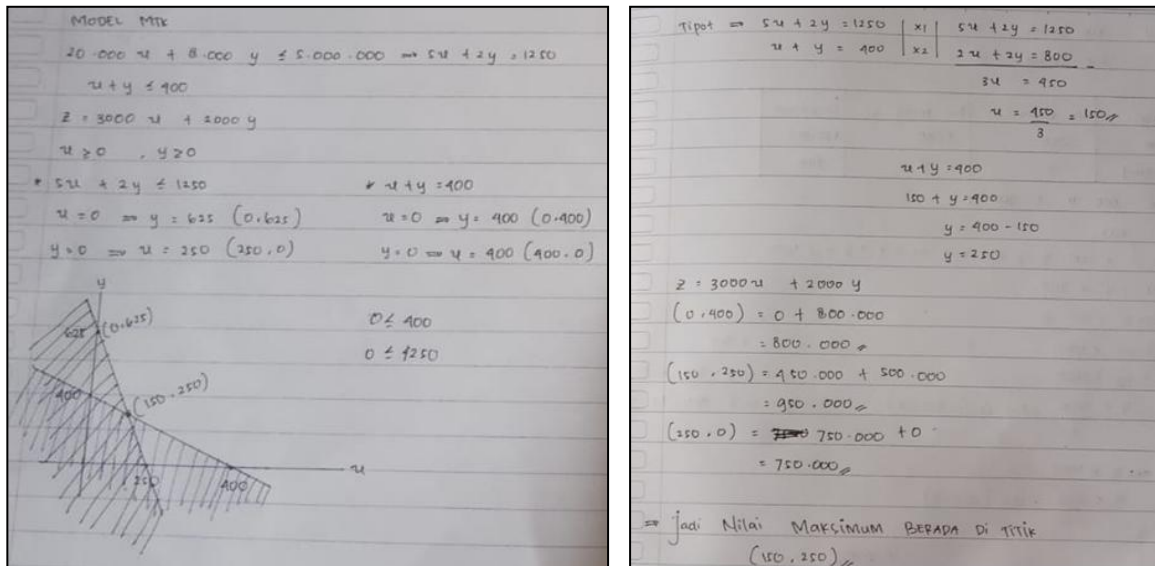 MODEL MTK
20.000 x + 8.000 y ≤ 5.000.000 ⇒ 5x + 2y = 1250
x + y ≤ 400
z = 3000 x + 2000 y
x ≥ 0 , y ≥ 0
* 5x + 2y ≤ 1250
x = 0 ⇒ y = 625 (0.625)
y = 0 ⇒ x = 250 (250,0)
* x + y = 400
x = 0 ⇒ y = 400 (0.400)
y = 0 ⇒ x = 400 (400.0)
y
625
(0.625)
400
(150.250)
250
400
x
0 ≤ 400
0 ≤ 1250
Tipot ⇒ 5x + 2y = 1250 | x1 | 5x + 2y = 1250
x + y = 400 | x2 | 2x + 2y = 800 -
3x = 450
x = 450/3 = 150//
x + y = 400
150 + y = 400
y = 400 - 150
y = 250
z = 3000 x + 2000 y
(0,400) = 0 + 800.000
= 800.000//
(150,250) = 450.000 + 500.000
= 950.000//
(250,0) = 750.000 + 0
= 750.000//
⇒ jadi Nilai Maksimum BERADA Di TiTiK
(150,250)//